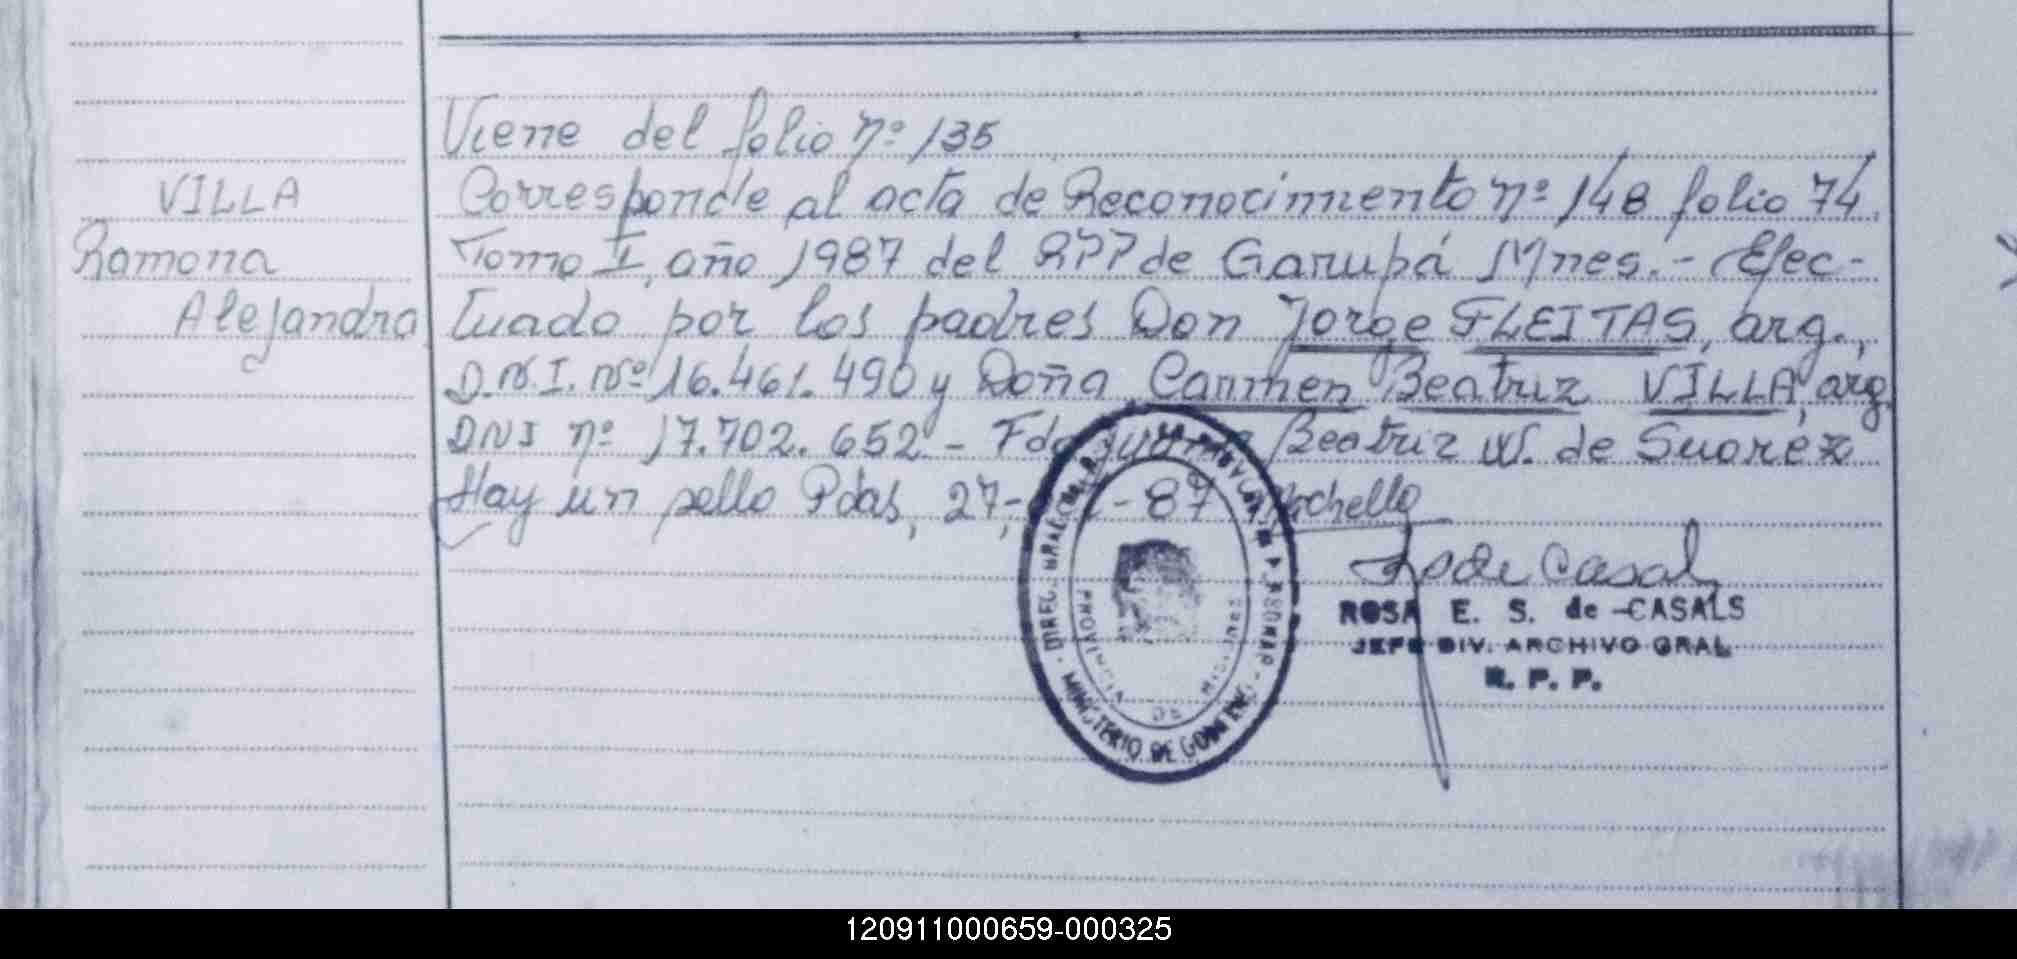 Viene del folio nº 135
VILLA
Ramona
Alejandra
Corresponde al acta de Reconocimiento nº 148 folio 74.
Tomo I, año 1987 del RPP de Garupá Mnes.- Efec-
tuado por los padres Don Jorge FLEITAS, arg.,
D.N.I. Nº 16.461.490 y Doña Carmen Beatriz VILLA, arg.
DNI nº 17.702.652 - Fdo Beatriz W. de Suarez
Hay un sello Pdas, 27- - 87
MINISTERIO DE GOBIERNO
PROVINCIA DE MISIONES
ROSA E. S. de CASALS
JEFE DIV. ARCHIVO GRAL
R. P. P.
120911000659-000325